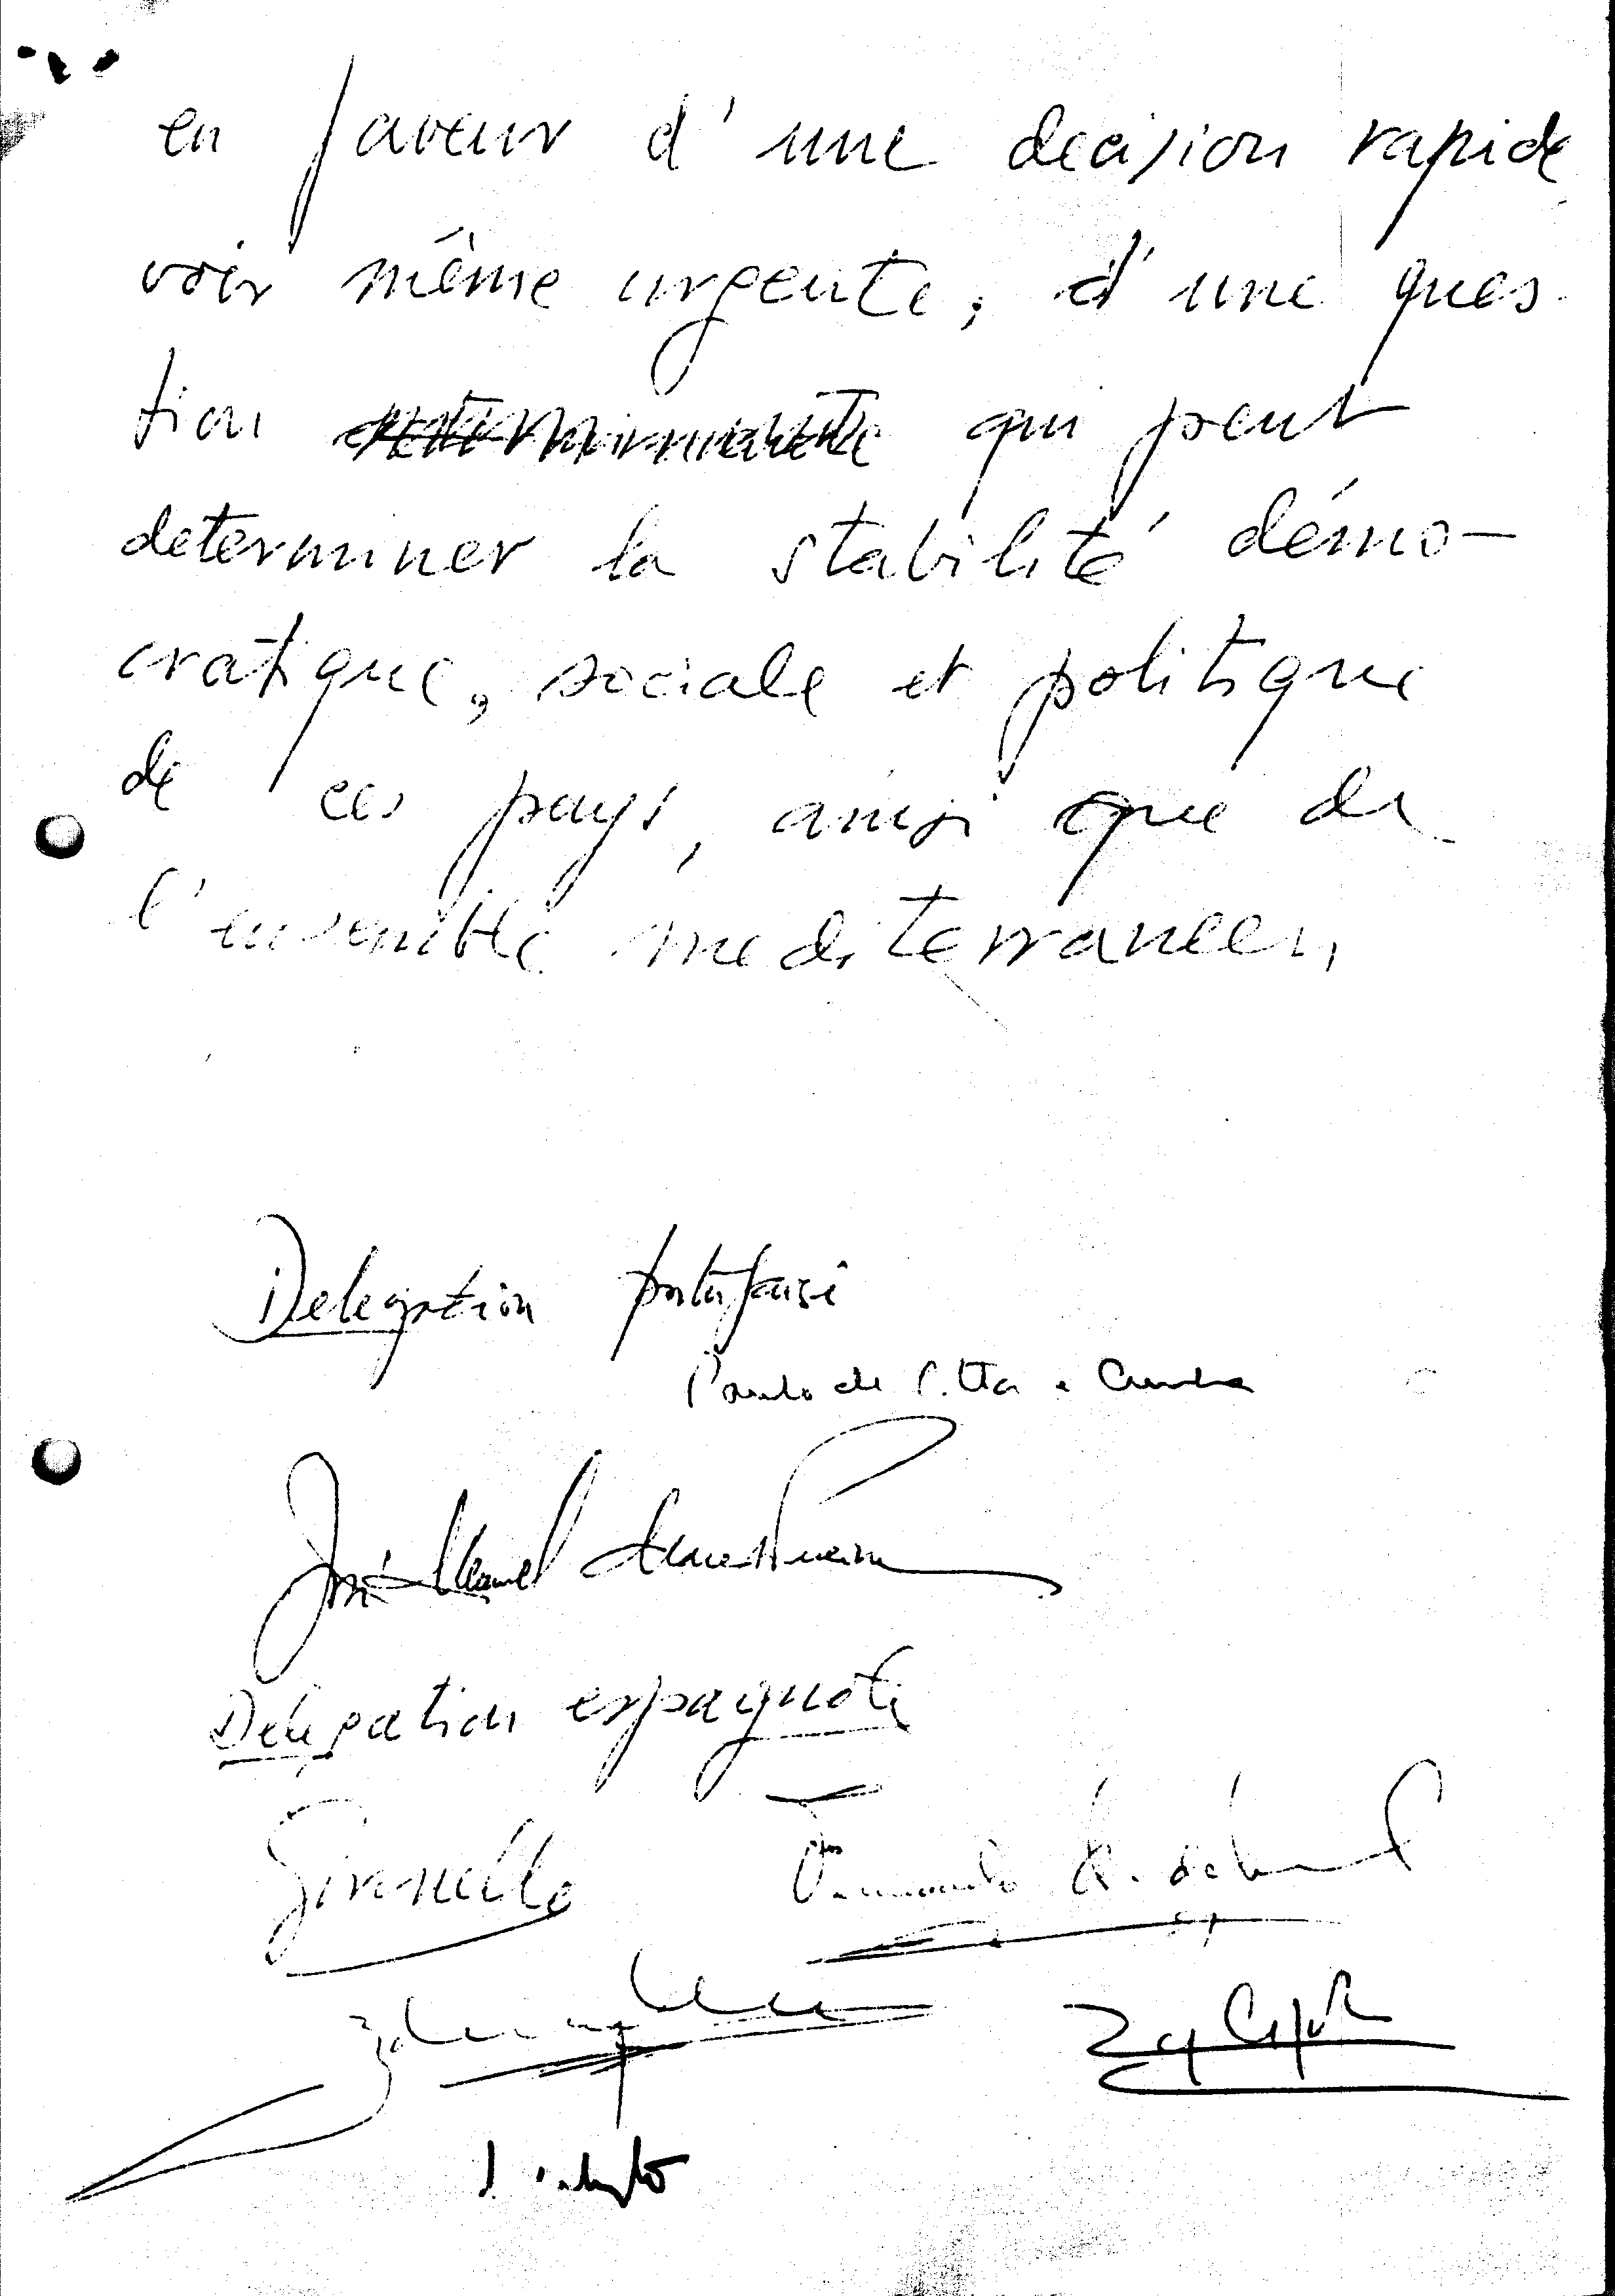 en faveur d'une decision rapide
voir même urgente, d'une ques-
tion qui peut
determiner la stabilité démo-
cratique, sociale et politique
de ces pays, ainsi que de
l'ensemble mediterraneen,
Delegation portugaise
Paulo de Pitta e Cunha
José Manuel
Delegation espagnole
Gironella
Fernando